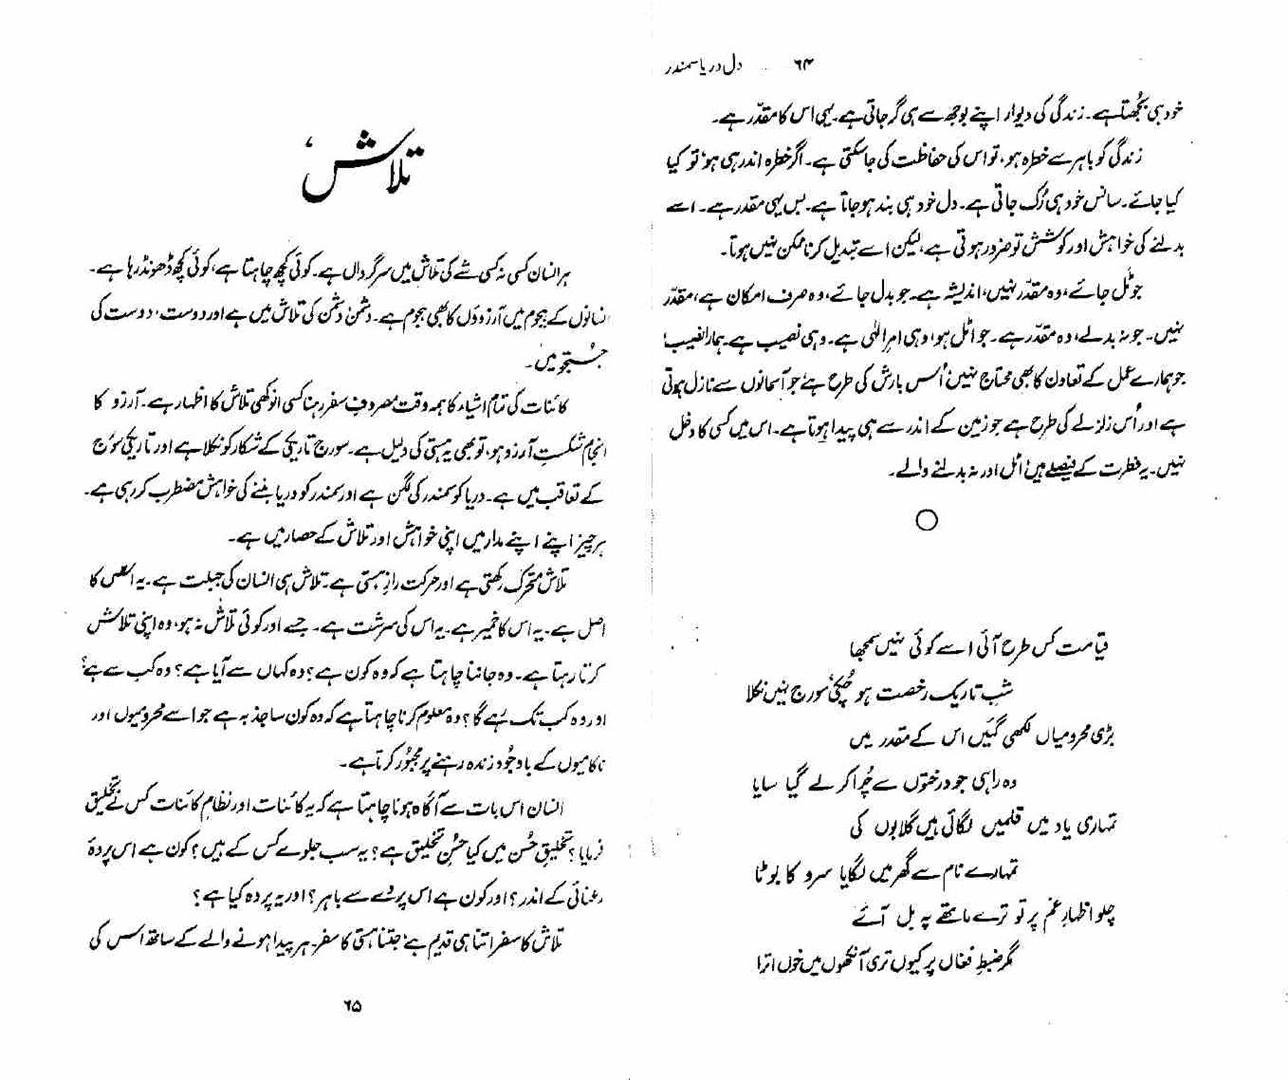 ۶۴ دل دریا سمندر
خود ہی بجھتا ہے۔ زندگی کی دیوار اپنے بوجھ سے ہی گر جاتی ہے۔ یہی اس کا مقدّر ہے۔
زندگی کو باہر سے خطرہ ہو، تو اس کی حفاظت کی جا سکتی ہے۔ اگر خطرہ اندر ہی ہو، تو کیا
کیا جائے۔ سانس خود ہی رُک جاتی ہے۔ دل خود ہی بند ہو جاتا ہے۔ بس یہی مقدر ہے۔ اسے
بدلنے کی خواہش اور کوشش تو ضرور ہوتی ہے، لیکن اسے تبدیل کرنا ممکن نہیں ہوتا۔
جو ٹل جائے، وہ مقدّر نہیں، اندیشہ ہے۔ جو بدل جائے، وہ صرف امکان ہے، مقدّر
نہیں۔ جو نہ بدلے، وہ مقدّر ہے۔ جو اٹل ہو، وہی امرِ الٰہی ہے۔ وہی نصیب ہے۔ ہمارا نصیب،
جو ہمارے عمل کے تعاون کا بھی محتاج نہیں، اُس بارش کی طرح ہے، جو آسمانوں سے نازل ہوتی
ہے اور اُس زلزلے کی طرح ہے جو زمین کے اندر سے ہی پیدا ہوتا ہے۔ اس میں کسی کا دخل
نہیں۔ یہ فطرت کے فیصلے ہیں، اٹل اور نہ بدلنے والے۔
قیامت کس طرح آئی اسے کوئی نہیں سمجھا
شبِ تاریک رخصت ہو چُکی، سورج نہیں نکلا
بڑی محرومیاں لکھی گئیں اس کے مقدر میں
وہ راہی جو درختوں سے چُرا کر لے گیا سایا
تمہاری یاد میں قلمیں لگائی ہیں گلابوں کی
تمہارے نام سے گھر میں لگایا سرو کا بوٹا
چلو اظہارِ غم پر تو ترے ماتھے پہ بل آئے
مگر ضبطِ فغاں پر کیوں تری آنکھوں میں خوں اترا
تلاش
ہر انسان کسی نہ کسی شے کی تلاش میں سرگرداں ہے۔ کوئی کچھ چاہتا ہے، کوئی کچھ ڈھونڈ رہا ہے۔
انسانوں کے ہجوم میں آرزوؤں کا بھی ہجوم ہے۔ دشمن، دشمن کی تلاش میں ہے اور دوست، دوست کی
جستجو میں۔
کائنات کی تمام اشیاء کا ہمہ وقت مصروفِ سفر رہنا کسی انوکھی تلاش کا اظہار ہے۔ آرزو کا
انجام شکستِ آرزو ہو، تو بھی یہ ہستی کی دلیل ہے۔ سورج تاریکی کے شکار کو نکلا ہے اور تاریکی سورج
کے تعاقب میں ہے۔ دریا کو سمندر کی لگن ہے اور سمندر کو دریا بننے کی خواہش مضطرب کر رہی ہے۔
ہر چیز اپنے اپنے مدار میں اپنی خواہش اور تلاش کے حصار میں ہے۔
تلاش متحرک رکھتی ہے اور حرکت رازِ ہستی ہے۔ تلاش ہی انسان کی جبلت ہے۔ یہ اس کا
اصل ہے۔ یہ اس کا خمیر ہے۔ یہ اس کی سرشت ہے۔ جسے اور کوئی تلاش نہ ہو، وہ اپنی تلاش
کرتا رہتا ہے۔ وہ جاننا چاہتا ہے کہ وہ کون ہے؟ وہ کہاں سے آیا ہے؟ وہ کب سے ہے؟
اور وہ کب تک رہے گا؟ وہ معلوم کرنا چاہتا ہے کہ وہ کون سا جذبہ ہے جو اسے محرومیوں اور
ناکامیوں کے باوجود زندہ رہنے پر مجبُور کرتا ہے۔
انسان اس بات سے آگاہ ہونا چاہتا ہے کہ یہ کائنات اور نظامِ کائنات کس نے تخلیق
فرمایا؟ تخلیقِ حُسن میں کیا حُسنِ تخلیق ہے؟ یہ سب جلوے کس کے ہیں؟ کون ہے اس پردۂ
رعنائی کے اندر؟ اور کون ہے اس پردے سے باہر؟ اور یہ پردہ کیا ہے؟
تلاش کا سفر اتنا ہی قدیم ہے، جتنا ہستی کا سفر۔ ہر پیدا ہونے والے کے ساتھ اس کی
۶۵